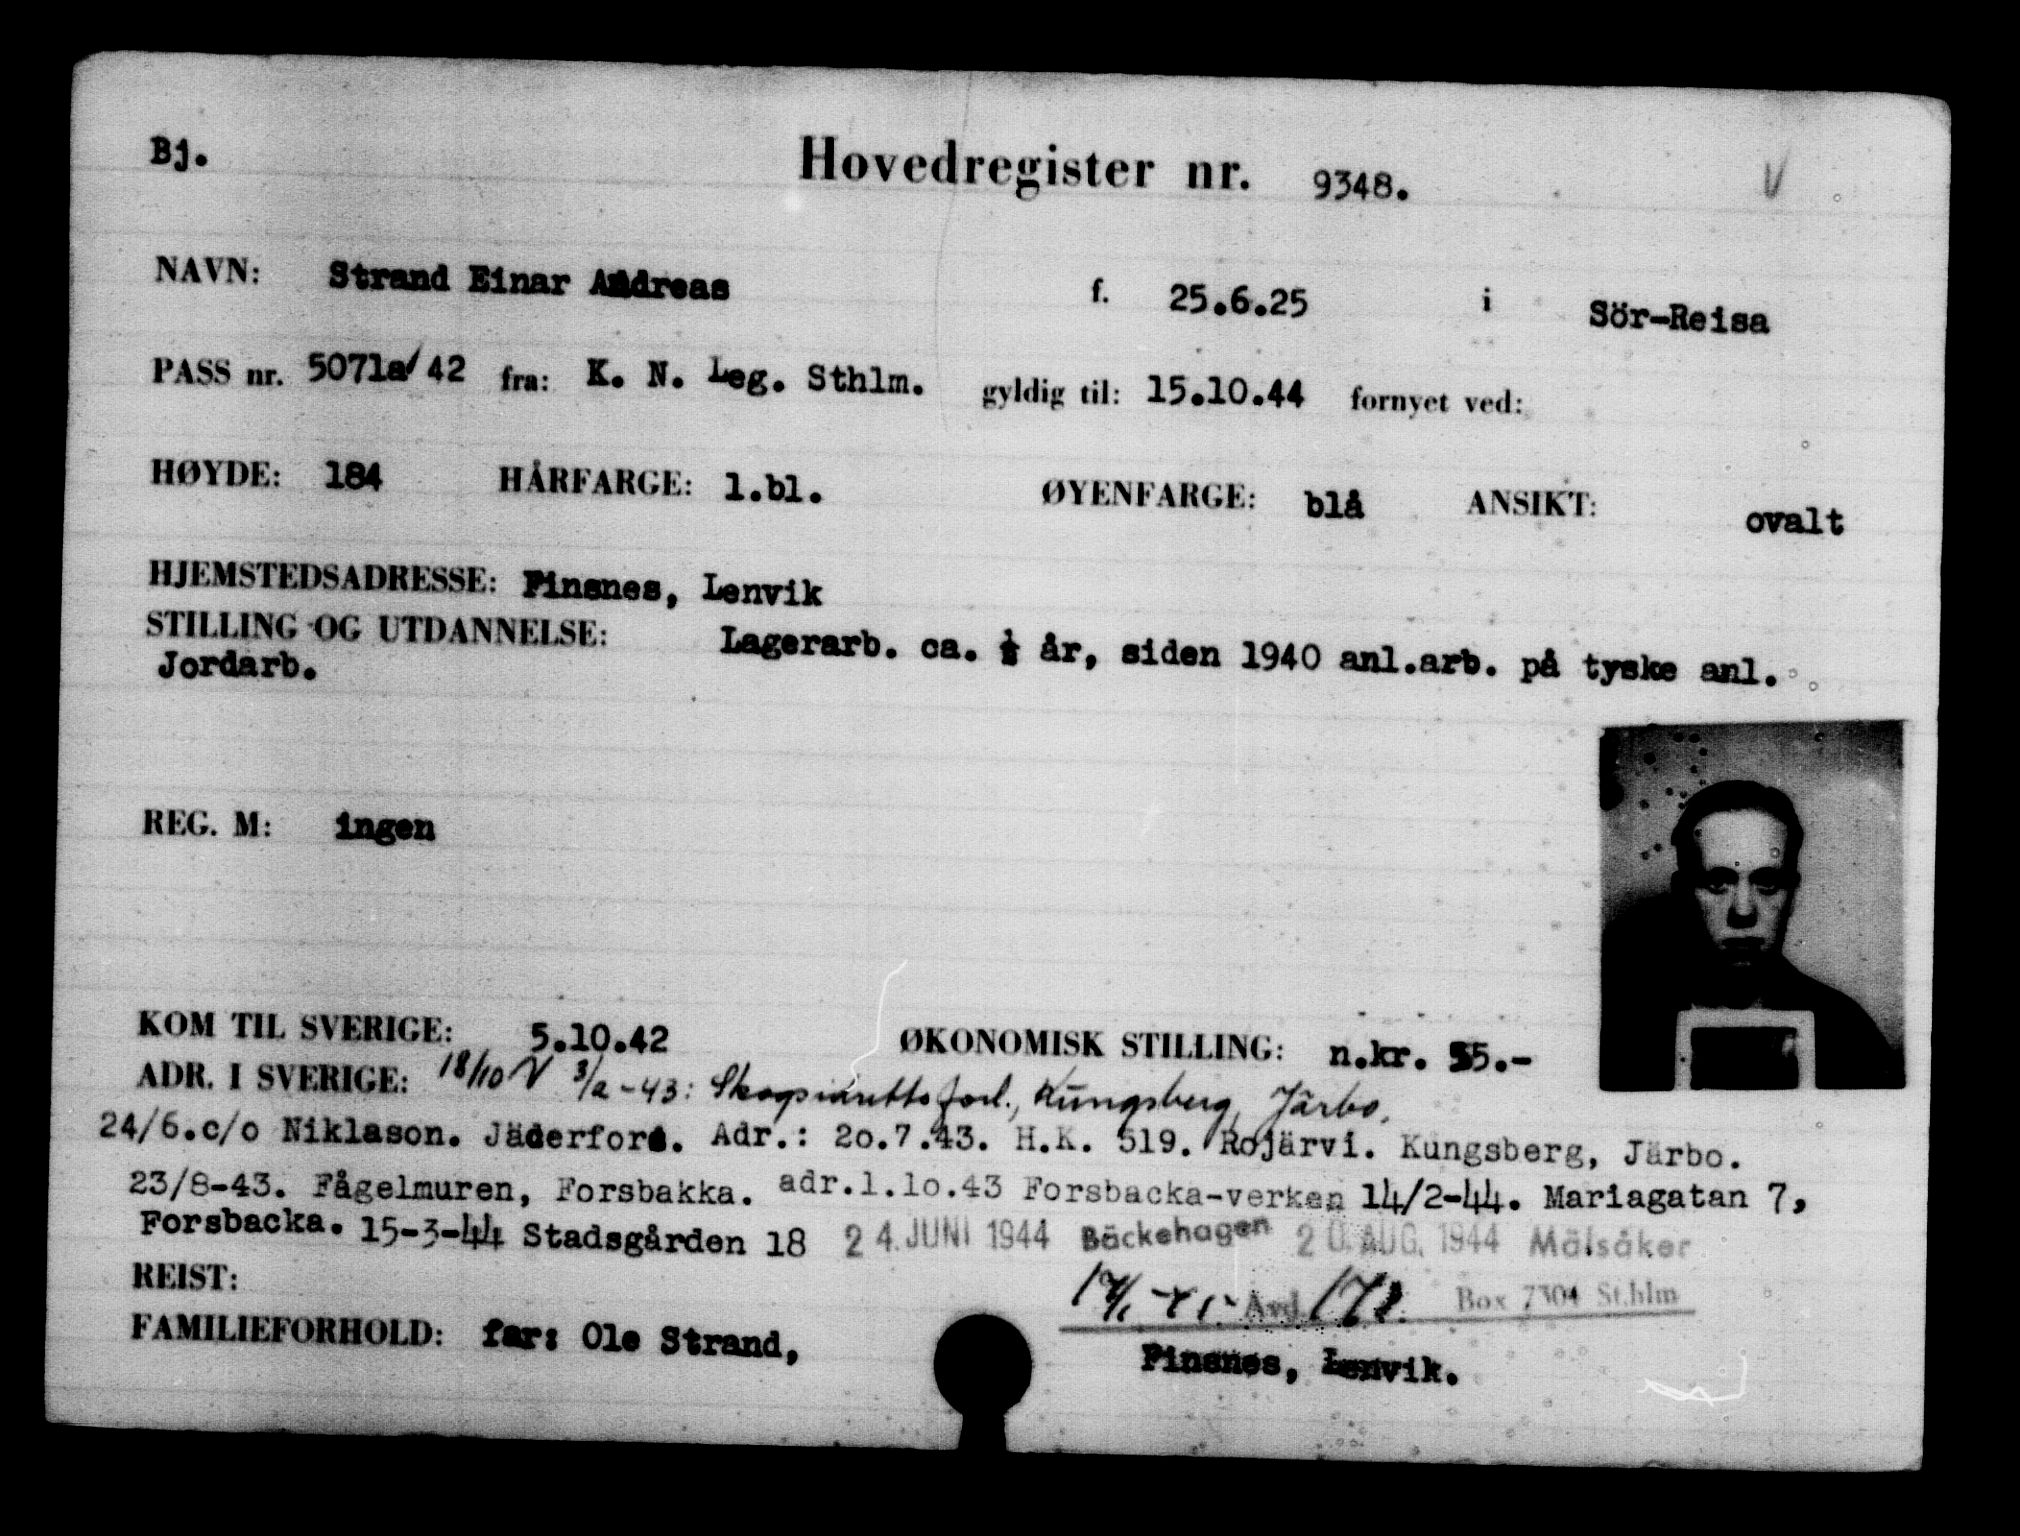 Bj. Hovedregister nr. 9348. V
NAVN: Strand Einar Andreas f. 25.6.25 i Sör-Reisa
PASS nr. 5071a/42 fra: K. N. Leg. Sthlm. gyldig til: 15.10.44 fornyet ved:
HØYDE: 184 HÅRFARGE: l.bl. ØYENFARGE: blå ANSIKT: ovalt
HJEMSTEDSADRESSE: Finsnes, Lenvik
STILLING OG UTDANNELSE: Lagerarb. ca. ½ år, siden 1940 anl.arb. på tyske anl.
Jordarb.
REG. M: ingen
KOM TIL SVERIGE: 5.10.42 ØKONOMISK STILLING: n.kr. 55.-
ADR. I SVERIGE: 18/10 V 3/2-43: Kungsberg, Järbo.
24/6.c/o Niklason. Jäderfors. Adr.: 2o.7.43. H.K. 519. Rojärvi. Kungsberg, Järbo.
23/8-43. Fågelmuren, Forsbakka. adr.1.1o.43 Forsbacka-verken 14/2-44. Mariagatan 7,
Forsbacka. 15-3-44 Stadsgården 18 24. JUNI 1944 Bäckehagen 20. AUG. 1944 Mälsåker
REIST: Avd. Box 7304 St.hlm
FAMILIEFORHOLD: far: Ole Strand, Finsnes, Lenvik.